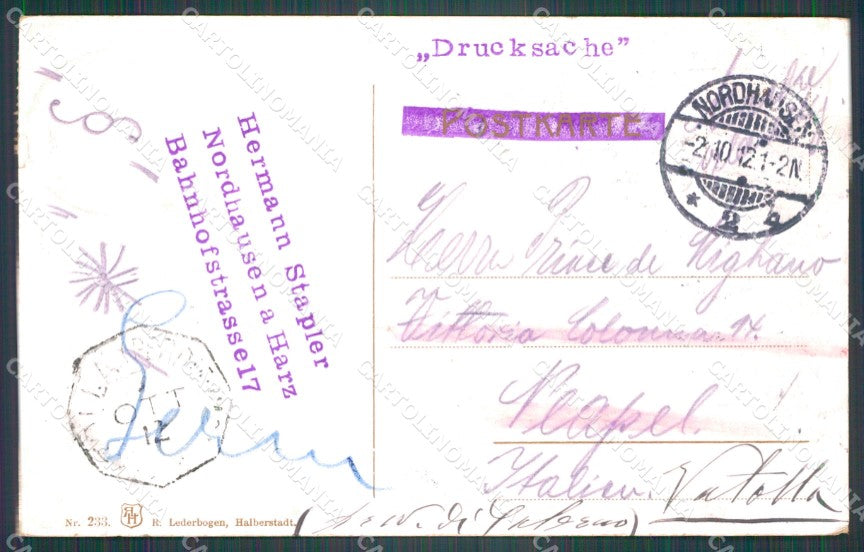 „Drucksache”
POSTKARTE
NORDHAUSEN
-2.10.12.1-2N
* 2 a
Hermann Stapler
Nordhausen a Harz
Bahnhofstrasse17
Herrn Prince de Mighano
Vittoria Colonna 14.
Neapel.
Italien.
Vatolla
OTT
12
Nr. 233.
R. Lederbogen, Halberstadt.
CARTOLINOMANIA